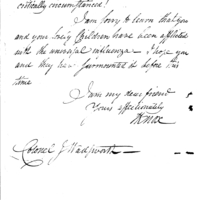 critically circumstanced!
I am sorry to learn that you
and your Lady & Children have been afflicted
with the universal influenza I hope you
and they have surmounted it before this
time
I am my dear friend
Yours affectionately
H Knox
Colonel J Wadsworth